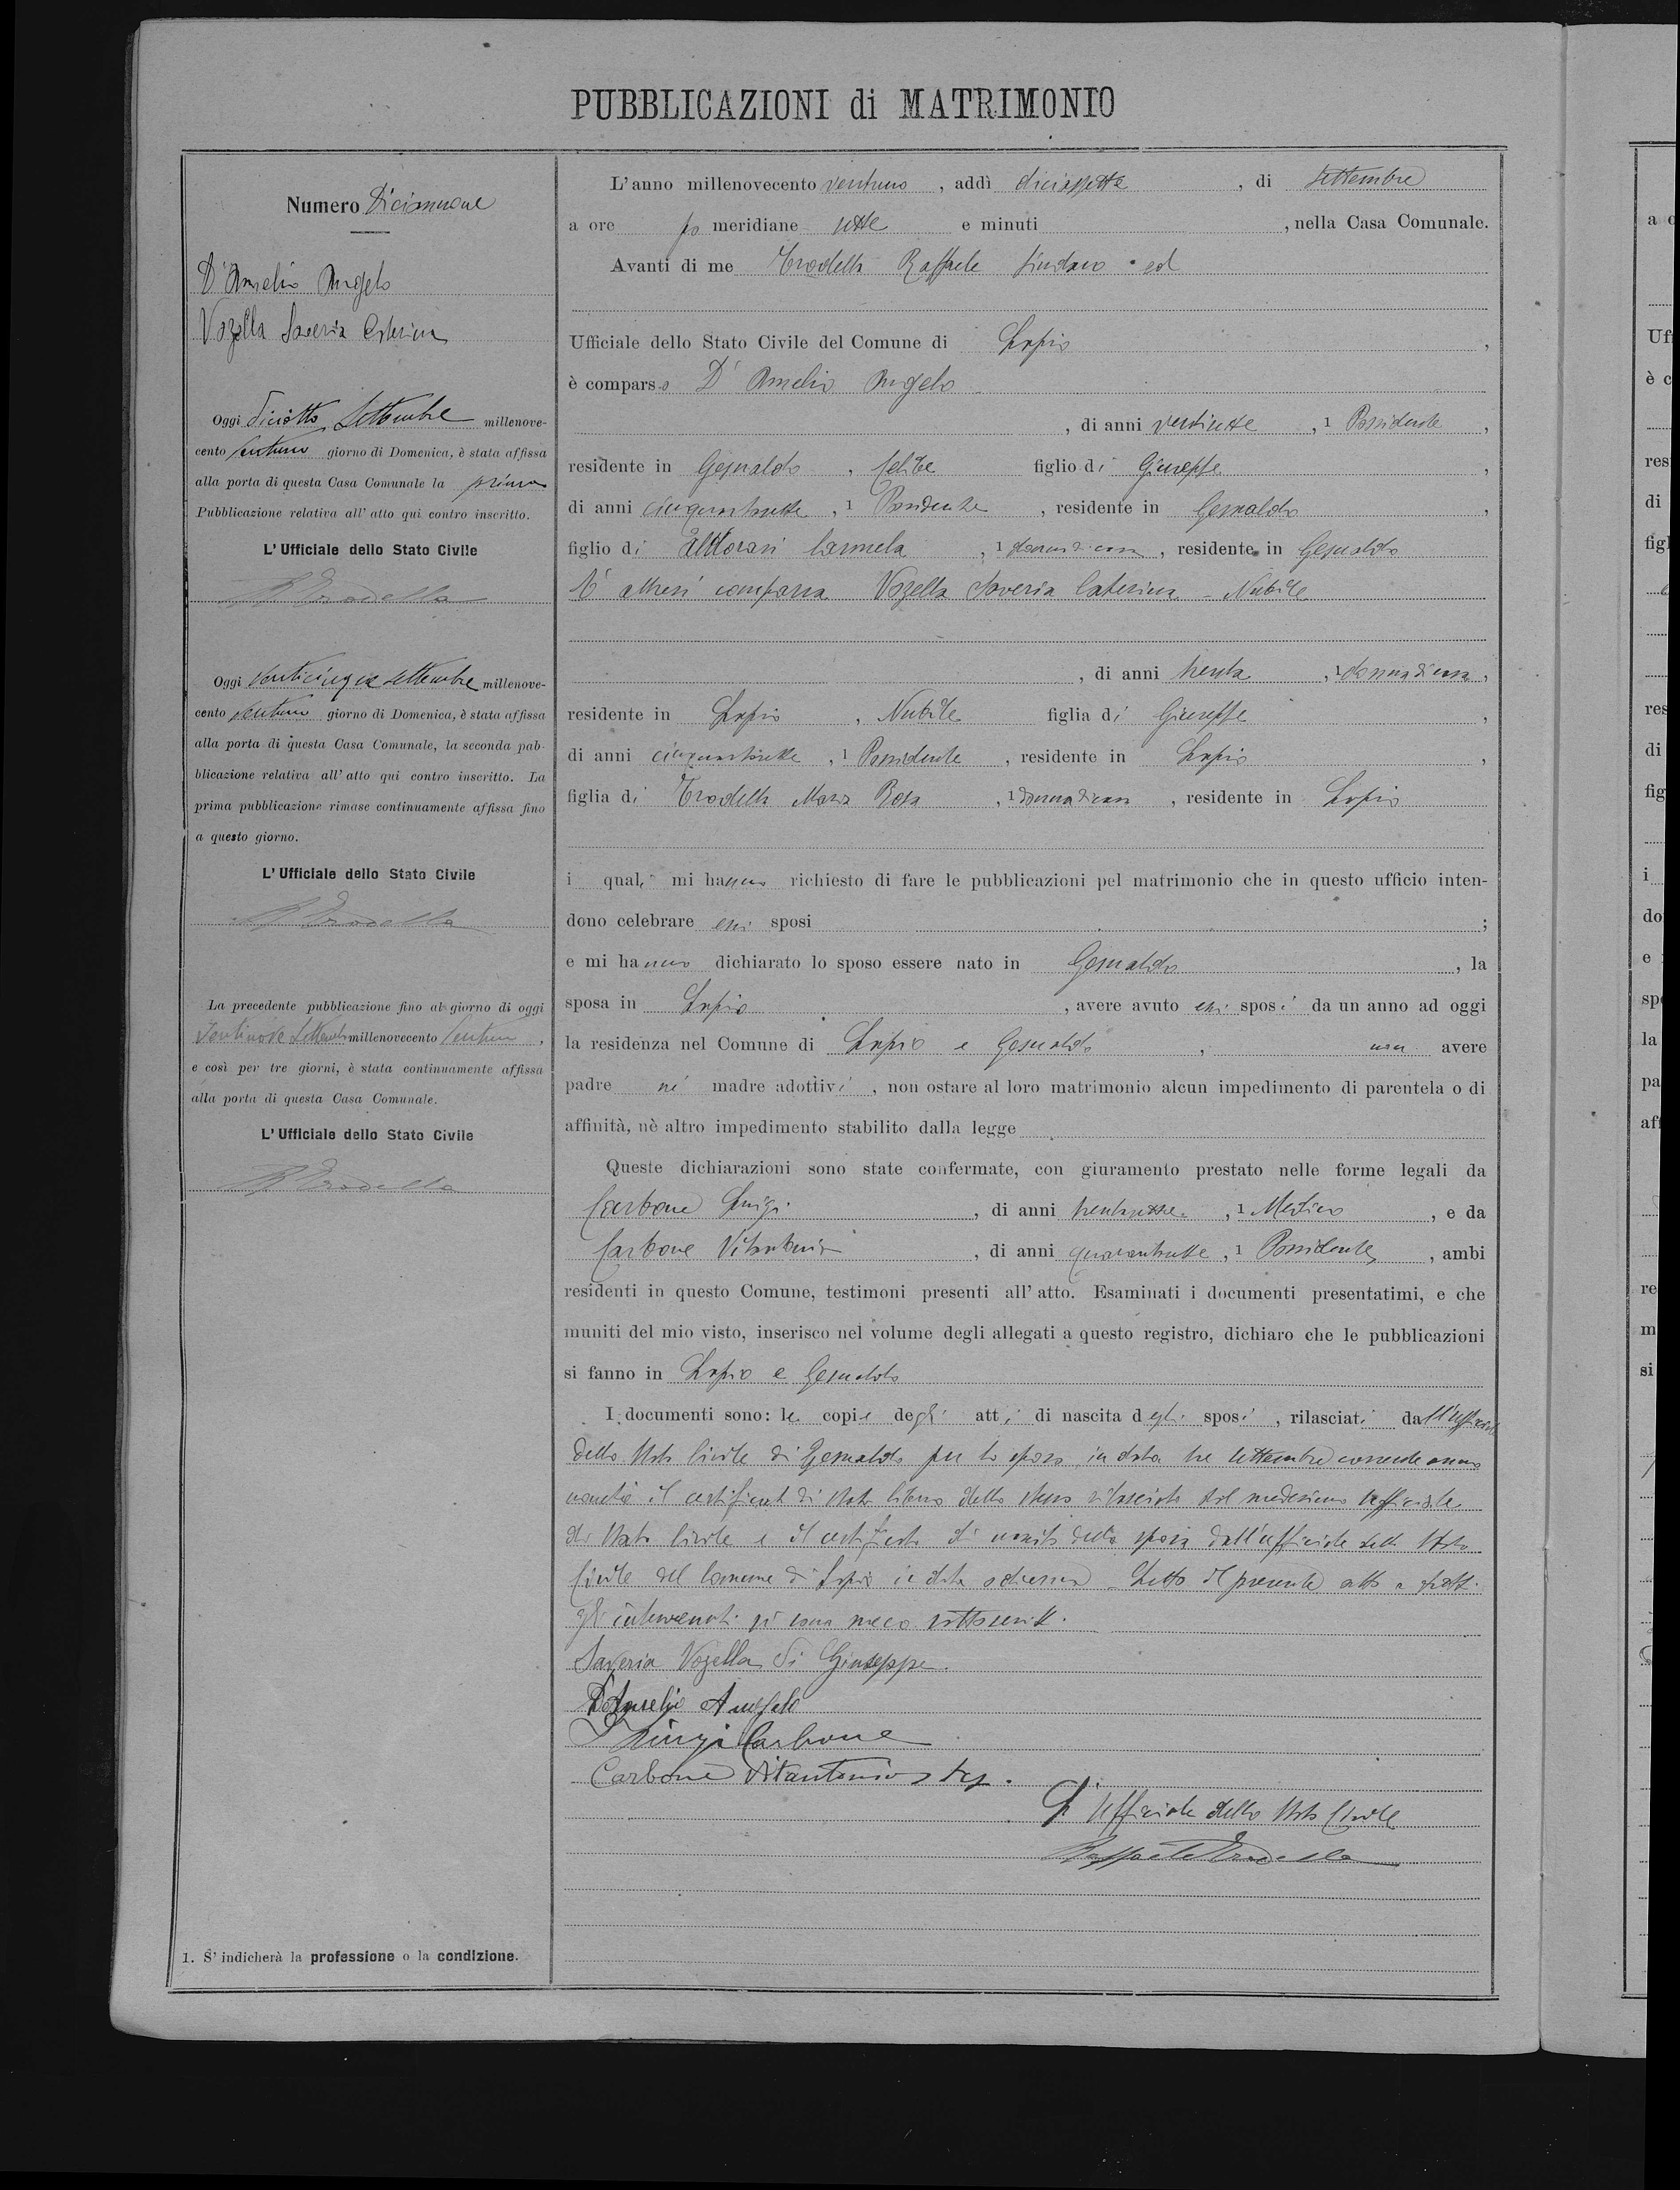 PUBBLICAZIONI di MATRIMONIO
Numero Diciannove
D'Amelio Angelo
Vozella Saveria Caterina
Oggi diciotto Settembre millenove-
cento ventuno giorno di Domenica, è stata affissa
alla porta di questa Casa Comunale la prima
Pubblicazione relativa all' atto qui contro inscritto.
L' Ufficiale dello Stato Civile
R. Trodella
Oggi venticinque settembre millenove-
cento ventuno giorno di Domenica, è stata affissa
alla porta di questa Casa Comunale, la seconda pub-
blicazione relativa all' atto qui contro inscritto. La
prima pubblicazione rimase continuamente affissa fino
a questo giorno.
L' Ufficiale dello Stato Civile
R. Trodella
La precedente pubblicazione fino al giorno di oggi
Ventinove Settembre millenovecento ventuno ,
e così per tre giorni, è stata continuamente affissa
alla porta di questa Casa Comunale.
L' Ufficiale dello Stato Civile
R. Trodella
1. S' indicherà la professione o la condizione.
L' anno millenovecento ventuno , addì diciassette , di Settembre
a ore po meridiane sette e minuti , nella Casa Comunale.
Avanti di me Trodella Raffaele Sindaco ed
Ufficiale dello Stato Civile del Comune di Lapio ,
è comparso D' Amelio Angelo
, di anni ventisette , 1 Possidente ,
residente in Gesualdo , celibe figlio di Giuseppe ,
di anni cinquantasette , 1 Possidente , residente in Gesualdo ,
figlio di Carmela , 1 donna di casa , residente in Gesualdo
È altresì comparsa Vozella Saveria Caterina - Nubile
, di anni trenta , 1 donna di casa ,
residente in Lapio , Nubile figlia di Giuseppe ,
di anni cinquantasette , 1 Possidente , residente in Lapio ,
figlia di Trodella Maria Rosa , 1 donna di casa , residente in Lapio
i quali mi hanno richiesto di fare le pubblicazioni pel matrimonio che in questo ufficio inten-
dono celebrare essi sposi ;
e mi hanno dichiarato lo sposo essere nato in Gesualdo , la
sposa in Lapio , avere avuto essi sposi da un anno ad oggi
la residenza nel Comune di Lapio e Gesualdo , non avere
padre nè madre adottivi , non ostare al loro matrimonio alcun impedimento di parentela o di
affinità, nè altro impedimento stabilito dalla legge
Queste dichiarazioni sono state confermate, con giuramento prestato nelle forme legali da
Carbone Luigi , di anni trentasette , 1 Medico , e da
Carbone Vitantonio , di anni quarantasette , 1 Possidente , ambi
residenti in questo Comune, testimoni presenti all' atto. Esaminati i documenti presentatimi, e che
muniti del mio visto, inserisco nel volume degli allegati a questo registro, dichiaro che le pubblicazioni
si fanno in Lapio e Gesualdo
I documenti sono: le copie degli atti di nascita degli sposi , rilasciati dall'ufficiale
dello Stato Civile di Gesualdo per lo sposo in data tre settembre corrente anno
nonchè il certificato di stato libero dello stesso rilasciato dal medesimo ufficiale
di Stato Civile e il certificato di nascita della sposa dall'ufficiale dello Stato
Civile del Comune di Lapio in data odierna - Letto il presente atto a tutti
gli intervenuti si sono meco sottoscritti.
Saveria Vozella di Giuseppe.
D'Amelio Angelo
Luigi Carbone
Carbone Vitantonio
L'Ufficiale dello Stato Civile
Raffaele Trodella